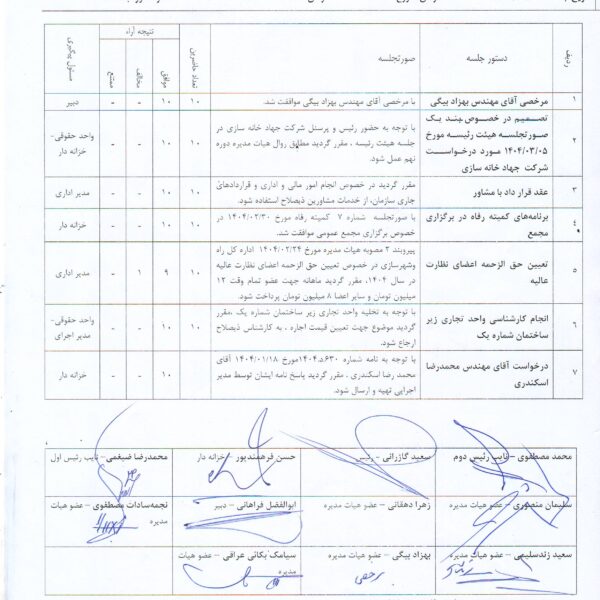 ردیف
دستور جلسه
صورتجلسه
تعداد حاضرین
نتیجه آراء
موافق
مخالف
ممتنع
مسئول پیگیری
۱
مرخصی آقای مهندس بهزاد بیگی
با مرخصی آقای مهندس بهزاد بیگی موافقت شد.
۱۰
۱۰
-
-
دبیر
۲
تصمیم در خصوص بند یک
صورتجلسه هیئت رئیسه مورخ
۱۴۰۴/۰۳/۰۵ مورد درخواست
شرکت جهاد خانه سازی
با توجه به حضور رئیس و پرسنل شرکت جهاد خانه سازی در
جلسه هیئت رئیسه ، مقرر گردید مطابق روال هیات مدیره دوره
نهم عمل شود.
۱۰
۱۰
-
-
واحد حقوقی-
خزانه دار
۳
عقد قرار داد با مشاور
مقرر گردید در خصوص انجام امور مالی و اداری و قراردادهای
جاری سازمان، از خدمات مشاورین ذیصلاح استفاده شود.
۱۰
۱۰
-
-
مدیر اداری
۴
برنامه‌های کمیته رفاه در برگزاری
مجمع
با صورتجلسه شماره ۷ کمیته رفاه مورخ ۱۴۰۴/۰۲/۳۰ در
خصوص برگزاری مجمع عمومی موافقت شد.
۱۰
۱۰
-
-
خزانه دار
۵
تعیین حق الزحمه اعضای نظارت
عالیه
پیروبند ۲ مصوبه هیات مدیره مورخ ۱۴۰۴/۰۲/۲۴ اداره کل راه
وشهرسازی در خصوص تعیین حق الزحمه اعضای نظارت عالیه
در سال ۱۴۰۴، مقرر گردید ماهانه جهت عضو تمام وقت ۱۲
میلیون تومان و سایر اعضا ۸ میلیون تومان پرداخت شود.
۱۰
۹
۱
-
مدیر اداری
۶
انجام کارشناسی واحد تجاری زیر
ساختمان شماره یک
با توجه به تخلیه واحد تجاری زیر ساختمان شماره یک ،مقرر
گردید موضوع جهت تعیین قیمت اجاره ، به کارشناس ذیصلاح
ارجاع شود.
۱۰
۱۰
-
-
واحد حقوقی-
مدیر اجرای
۷
درخواست آقای مهندس محمدرضا
اسکندری
با توجه به نامه شماره ۱۴۰۴،۶۳۰مورخ ۱۴۰۴/۰۱/۱۸ آقای
محمد رضا اسکندری ، مقرر گردید پاسخ نامه ایشان توسط مدیر
اجرایی تهیه و ارسال شود.
۱۰
-
-
خزانه دار
محمد مصطفوی – نایب رئیس دوم
سعید گازرانی – رئیس
حسن فرهمندپور – خزانه دار
محمدرضا ضیغمی – نایب رئیس اول
سلیمان منصوری – عضو هیات مدیره
زهرا دهقانی – عضو هیات مدیره
ابوالفضل فراهانی – دبیر
نجمه‌سادات مصطفوی – عضو هیات
مدیره
سعید زندسلیمی – عضو هیات مدیره
بهزاد بیگی – عضو هیات مدیره
مرخصی
سیامک بکائی عراقی – عضو هیات
مدیره